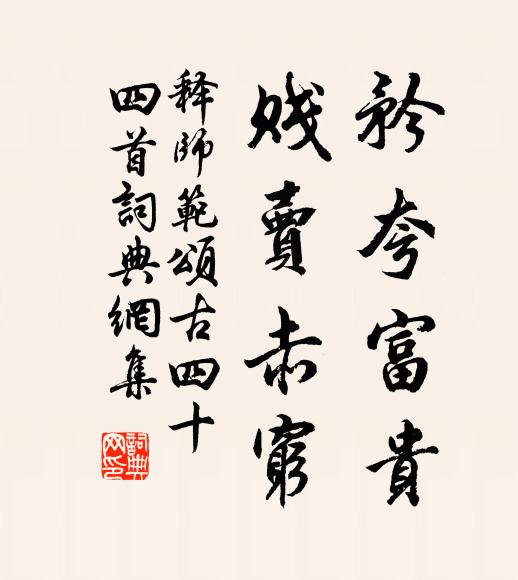 矜夸富貴
賤賣赤窮
释師範頌古四十
四首詞典網集
詞典網印